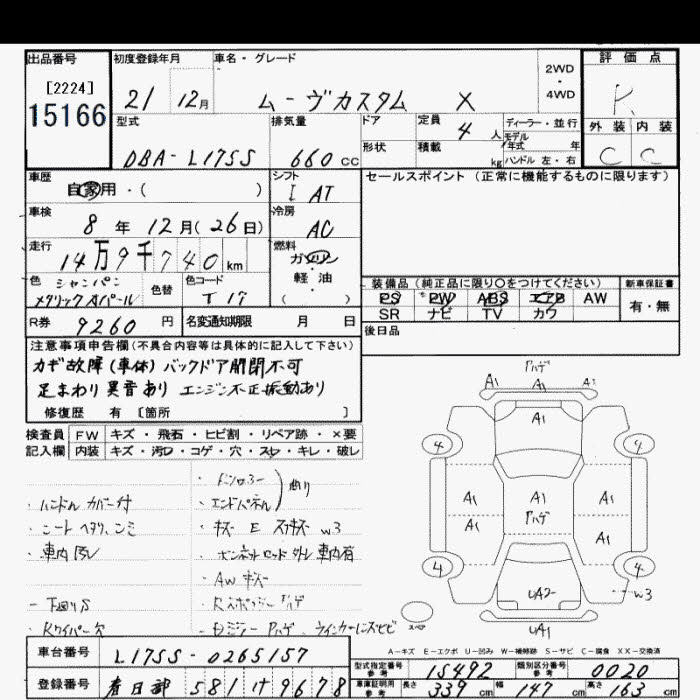 出品番号 初度登録年月 車名・グレード 評価点
[2224]
15166
21 12月 ムーヴカスタム X 2WD・4WD R
型式 排気量 ドア 定員 4人 ディーラー・並行 外装 内装
モデル年式 年
DBA-L175S 660cc 形状 積載 kg ハンドル 左・右 C C
車歴 自家用・( ) シフト I AT セールスポイント(正常に機能するものに限ります)
車検 8年12月(26日) 冷房 AC
走行 14万9千740km 燃料 ガソリン・軽油( )
色 シャンパンメタリックオパール 色替 色コード T17
装備品(純正品に限り○をつけてください) 新車保証書
PS PW ABS エアB AW 有・無
SR ナビ TV カワ
R券 9260円 名変通知期限 月 日 後日品
注意事項申告欄(不具合内容等は具体的に記入して下さい)
カギ故障(車体)バックドア開閉不可
足まわり異音あり エンジン不正振動あり
修復歴 有 [箇所 ]
検査員 FW キズ・飛石・ヒビ割・リペア跡・×要
記入欄 内装 キズ・汚し・コゲ・穴・スレ・キレ・破レ
・ハンドルカバー付
・エンドパネル
・シートヘタリ、シミ
・キズ E ススキズ W3
・ボンネットロッド外レ 車内有
・AWキズ
-下廻りS
-Kワイパー欠
A1 A1 A1
A1
4 4
A1 A1 A1
A1 A1
4 4
UA2 W3
UA1
スペア
A-キズ E-エクボ U-凹み W-補修跡 S-サビ C-腐食 XX-交換済
車台番号 L175S-0265157
型式指定番号 参考 15492 類別区分番号 参考 0020
登録番号 春日部 581 け 9678
車庫証明用 参考 長さ 339cm 幅 147cm 高さ 163cm